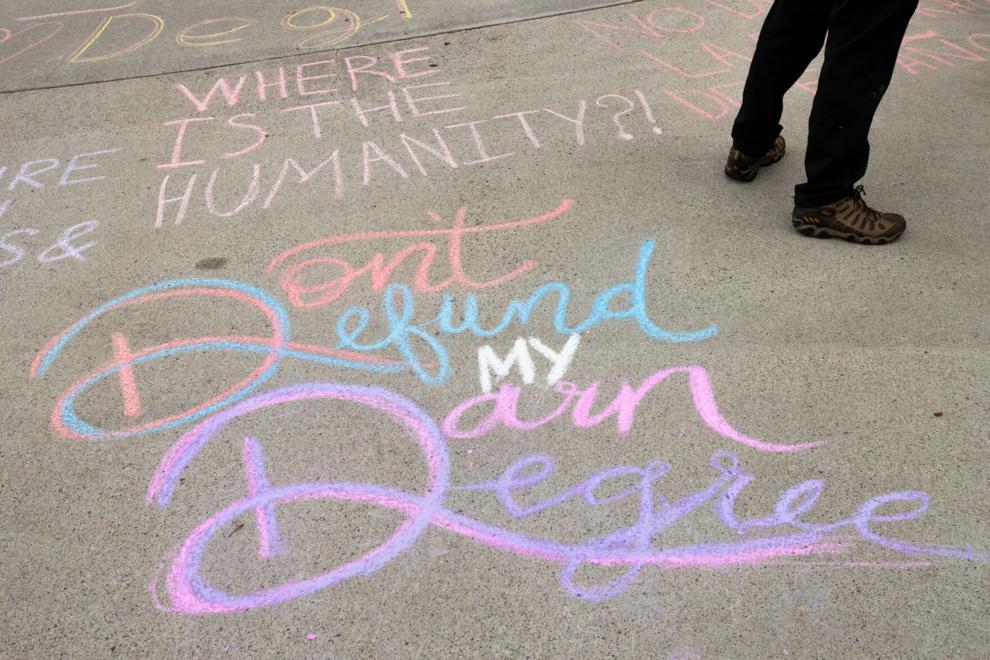 WHERE
IS THE
HUMANITY?!
Don't
Defund
MY
Darn
Degree